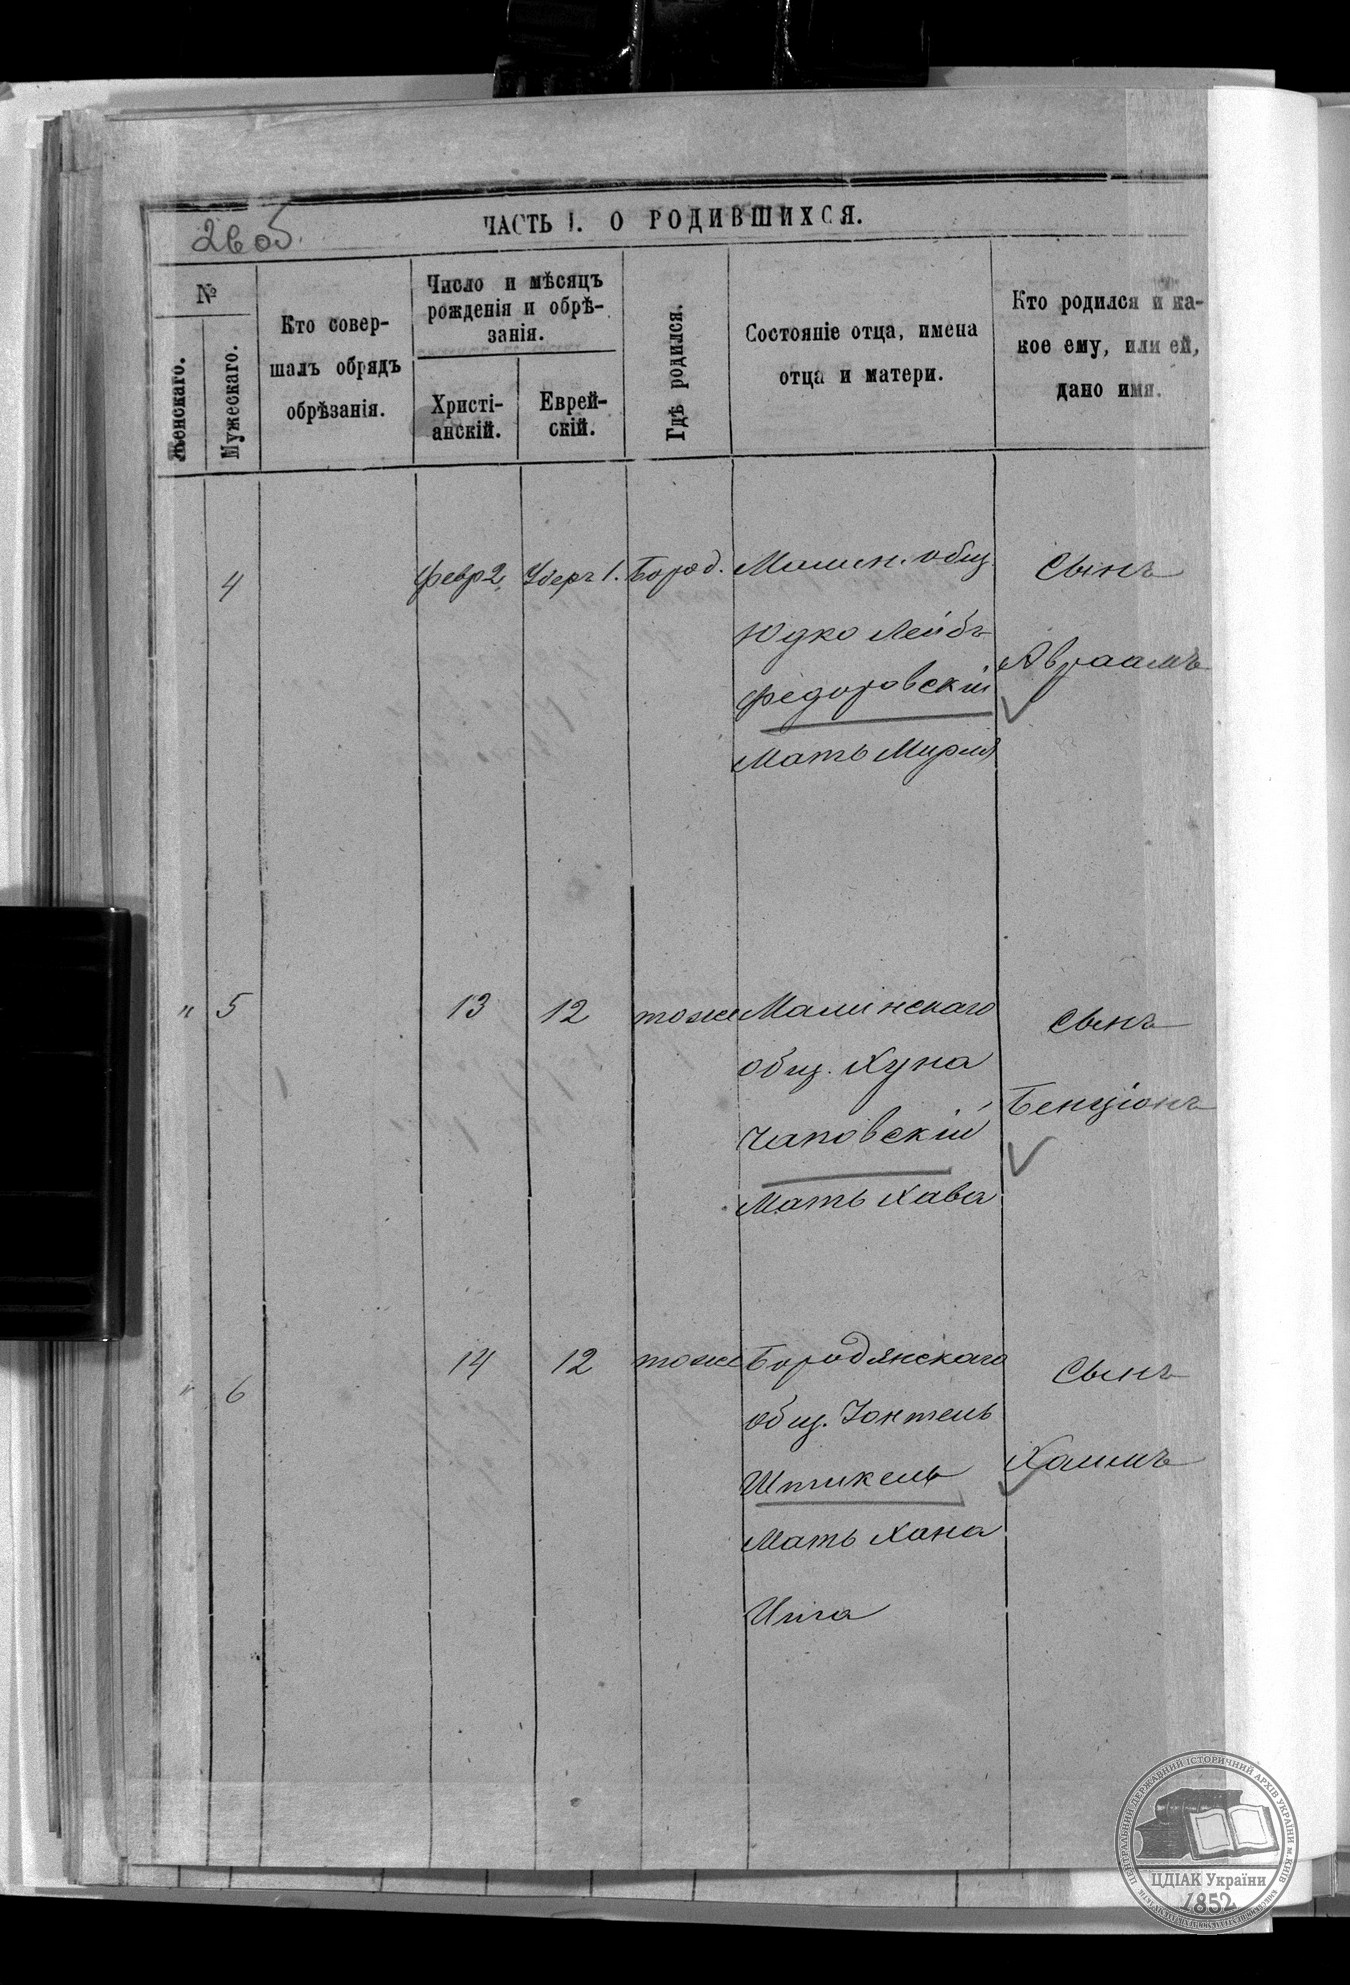 26 об.
ЧАСТЬ I. О РОДИВШИХСЯ.
№
Женскаго.
Мужескаго.
Кто совер-
шалъ обрядъ
обрѣзанія.
Число и мѣсяцъ
рожденія и обрѣ-
занія.
Христі-
анскій.
Еврей-
скій.
Гдѣ родился.
Состояніе отца, имена
отца и матери.
Кто родился и ка-
кое ему, или ей,
дано имя.
4
Февр 2
1.
Бород.
Малин. общ.
Юдко Лейбъ
Федоровскій
Мать Мирля
Сынъ
Авраамъ
" 5
13
12
тоже
Малинскаго
общ. Хуна
Чаповскій
Мать Хава
Сынъ
Бенціонъ
" 6
14
12
тоже
Бородянскаго
общ. Іонтель
Штикель
Мать Хана
Сынъ
Хаимъ
ЦЕНТРАЛЬНИЙ ДЕРЖАВНИЙ ІСТОРИЧНИЙ АРХІВ УКРАЇНИ м. КИЇВ
ЦДІАК України
1852